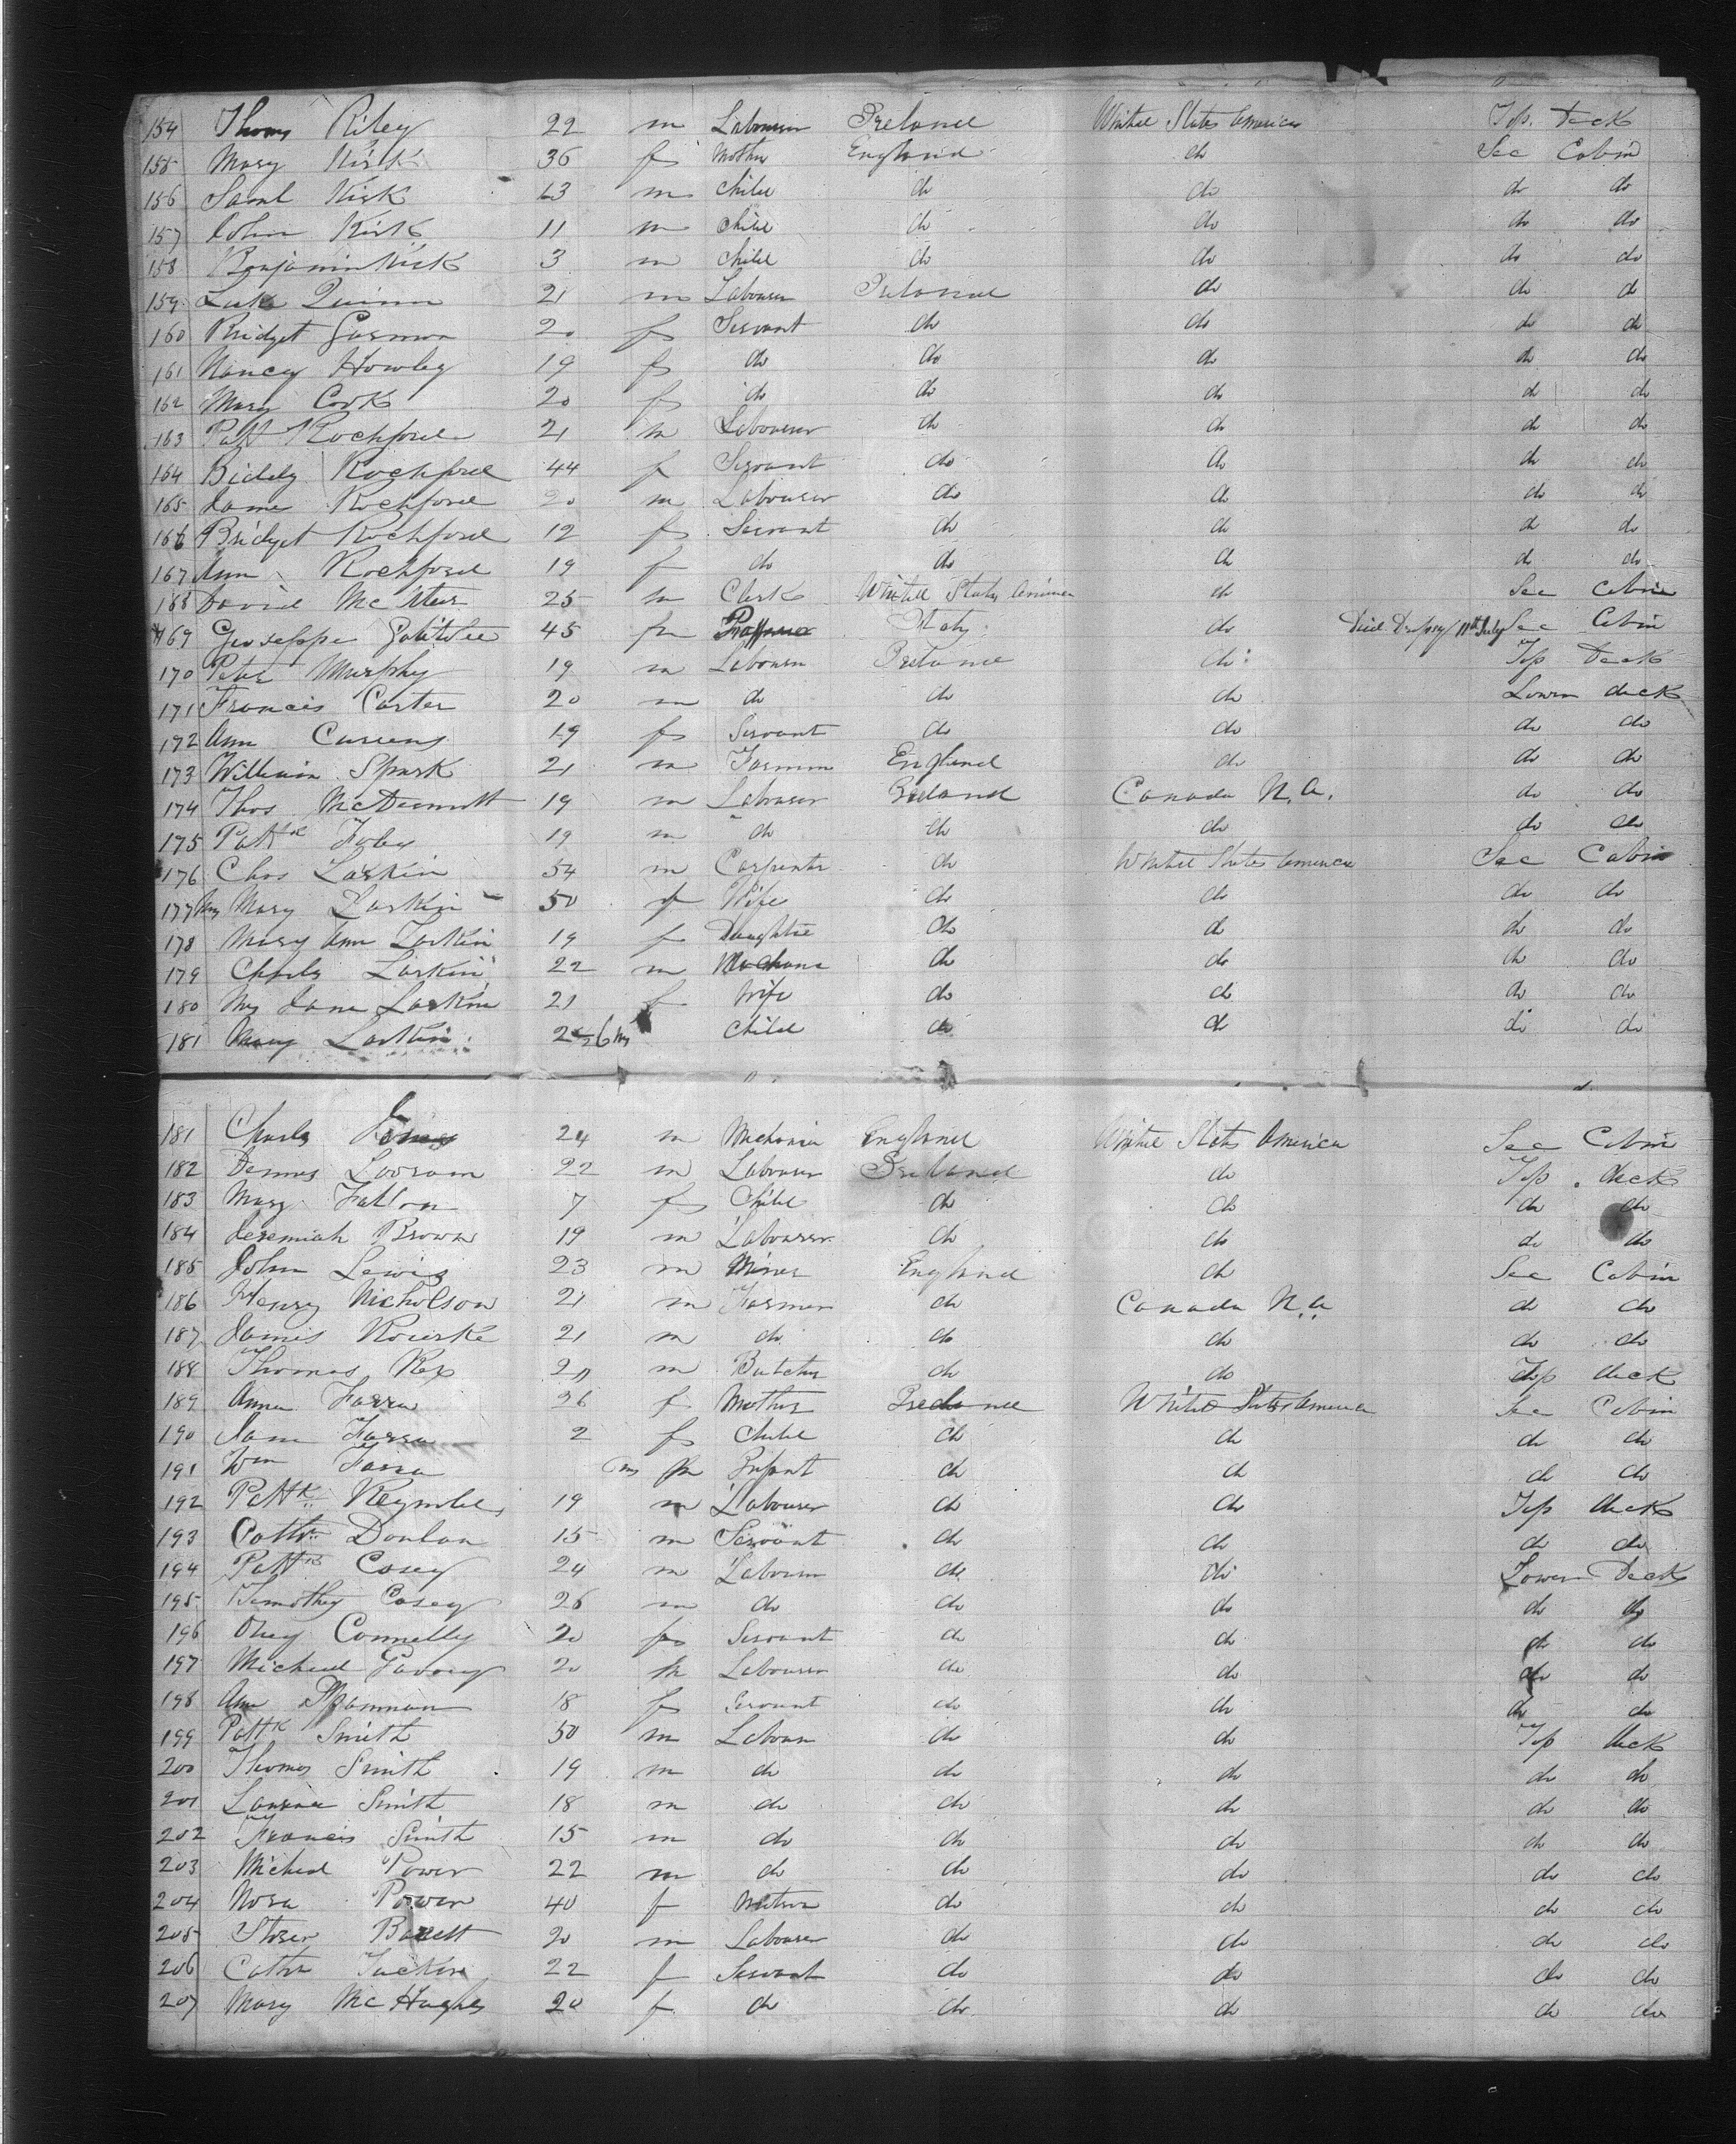 154 Thomas Riley 22 m Labourer Ireland United States America Top. Deck
155 Mary Kirk 36 f Mother England do Sec Cabin
156 Saml Kirk 13 m Child do do do do
157 John Kirk 11 m Child do do do do
158 Benjamin Kirk 3 m Child do do do do
159 Luke Quinn 21 m Labourer Ireland do do do
160 Bridget Garmon 20 f Servant do do do do
161 Nancy Howley 19 f do do do do do
162 Mary Cook 20 f do do do do do
163 Patt Rochford 21 m Labourer do do do do
164 Biddy Rochford 44 f Servant do do do do
165 James Rochford 20 m Labourer do do do do
166 Bridget Rochford 12 f Servant do do do do
167 Ann Rochford 19 f do do do do do
168 David 25 m Clerk United States America do Sec Cabin
169 Giuseppe 45 m Italy do Died Dropsy 11th July Sec Cabin
170 Peter Murphy 19 m Labourer Ireland do Top Deck
171 Francis Carter 20 m do do do Lower deck
172 Ann 19 f Servant do do do do
173 William Spark 21 m Farmer England do do do
174 Thos McDermott 19 m Labourer Ireland Canada N.A. do do
175 Pattk Foley 19 m do do do do do
176 Chas Larkin 54 m Carpenter do United States America Sec Cabin
177 Mrs Mary Larkin 50 f Wife do do do do
178 Mary Ann Larkin 19 f Daughter do do do do
179 Charles Larkin 22 m do do do do
180 Mrs Jane Larkin 21 f Wife do do do do
181 Mary Larkin Child do do do do
181 Charles 24 m Mechanic England United States America Sec Cabin
182 Dennis 22 m Labourer Ireland do Top deck
183 Mary Fallon 7 f Child do do do do
184 Jeremiah Brown 19 m Labourer do do do do
185 John Lewis 23 m Miner England do Sec Cabin
186 Henry Nicholson 21 m Farmer do Canada N.A do do
187 James Rourke 21 m do do do do do
188 Thomas Rex m Butcher do do Top deck
189 Anna Farra 26 f Mother Ireland United States America Sec Cabin
190 Jane Farra 2 f Child do do do do
191 Wm Farra m Infant do do do do
192 Pattk Reynolds 19 m Labourer do do Top deck
193 Donlan 15 m Servant do do do do
194 Pattk Casey 24 m Labourer do do Lower Deck
195 Timothy Casey 26 m do do do do do
196 Connelly 20 f Servant do do do do
197 Michael 20 m Labourer do do do do
198 Ann 18 f Servant do do do do
199 Pattk Smith 50 m Labourer do do Top deck
200 Thomas Smith 19 m do do do do do
201 Smith 18 m do do do do do
202 Francis Smith 15 m do do do do do
203 Michael Power 22 m do do do do do
204 Nora Power 40 f Matron do do do do
205 Barrett 20 m Labourer do do do do
206 Cathn 22 f Servant do do do do
207 Mary McHughes 20 f do do do do do